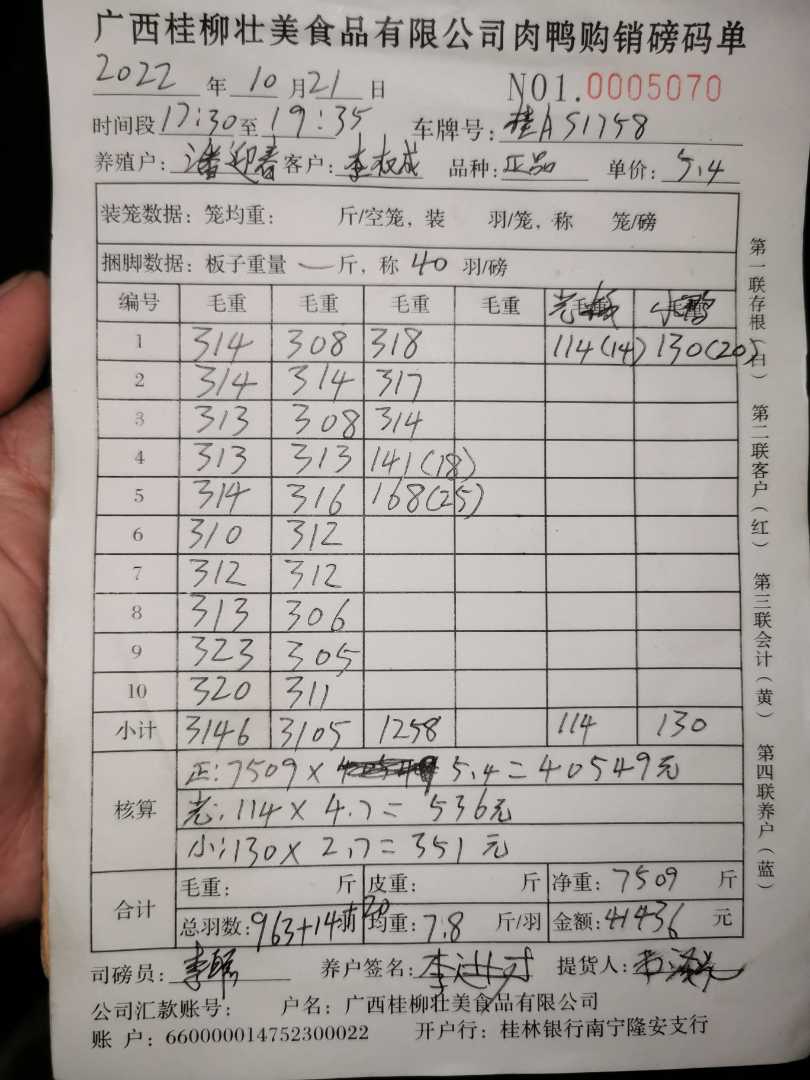 广西桂柳壮美食品有限公司肉鸭购销磅码单
2022 年 10 月 21 日 NO1.0005070
时间段 17:30 至 19:35 车牌号: 桂A S1758
养殖户: 潘迎春 客户: 李权成 品种: 正品 单价: 5.4
装笼数据: 笼均重: 斤/空笼, 装 羽/笼, 称 笼/磅
捆脚数据: 板子重量 — 斤, 称 40 羽/磅
编号 毛重 毛重 毛重 毛重 毛重 毛重
1 314 308 318 114(14) 130(20)
2 314 314 317
3 313 308 314
4 313 313 141(18)
5 314 316 168(25)
6 310 312
7 312 312
8 313 306
9 323 305
10 320 311
小计 3146 3105 1258 114 130
核算 正:7509×5.4=40549元
老:114×4.7=536元
小:130×2.7=351元
合计 毛重: 斤 皮重: 斤 净重: 7509 斤
总羽数: 963+14+20 均重: 7.8 斤/羽 金额: 41436 元
司磅员: 养户签名: 提货人:
公司汇款账号: 户名: 广西桂柳壮美食品有限公司
账 户: 660000014752300022 开户行: 桂林银行南宁隆安支行
第一联存根(白) 第二联客户(红) 第三联会计(黄) 第四联养户(蓝)